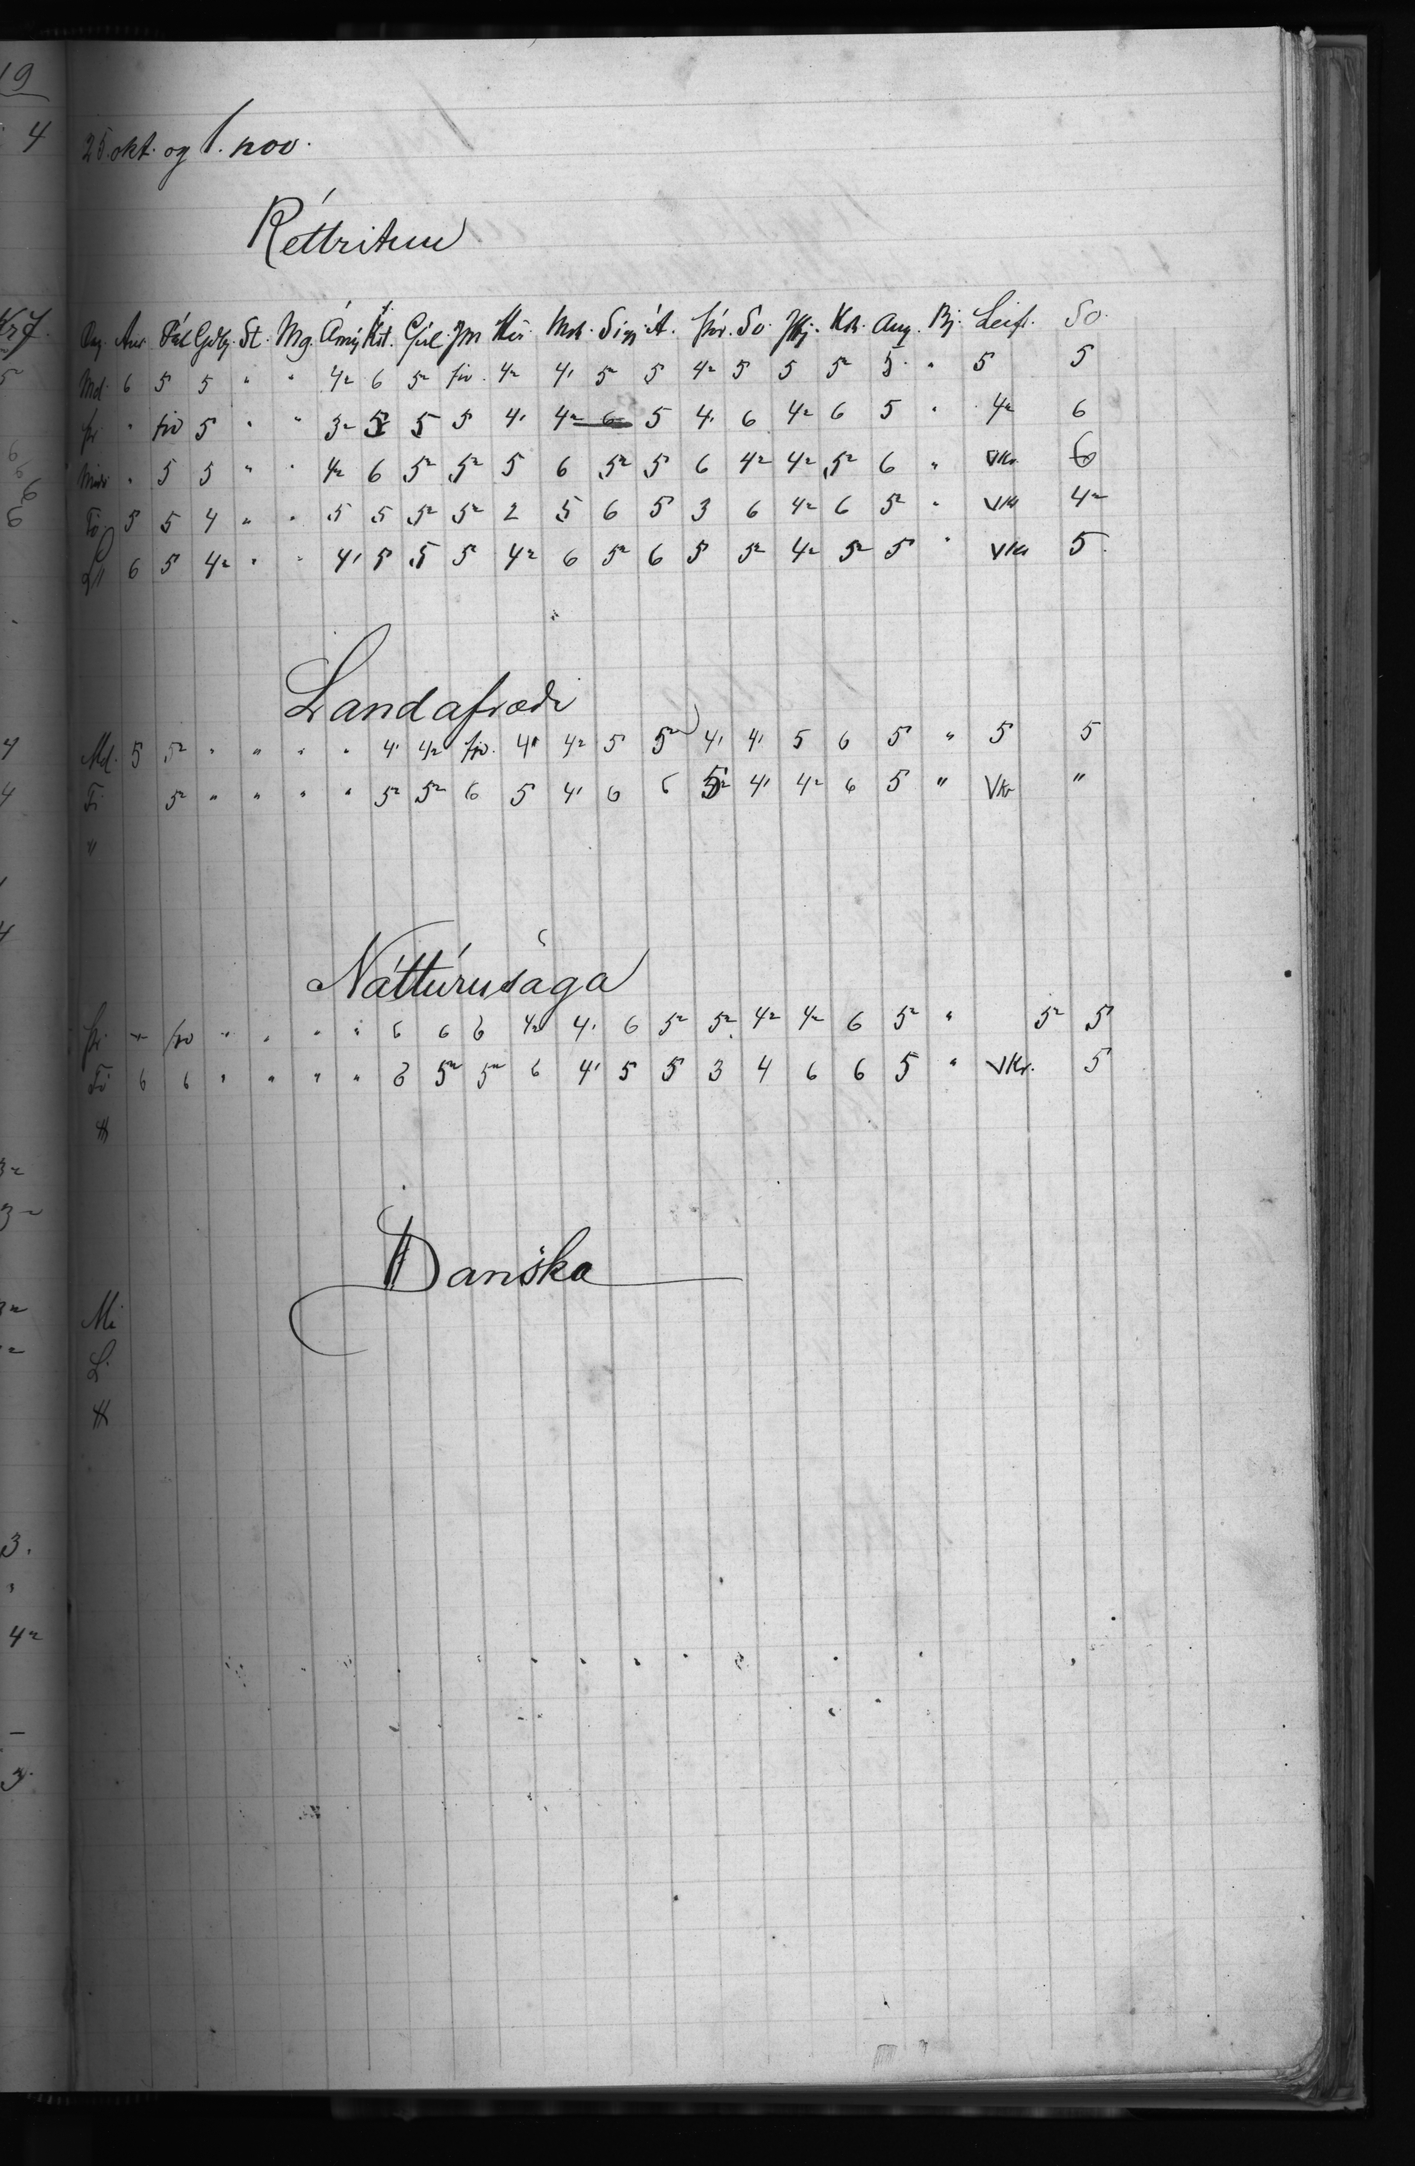 25. okt. og 1. nov.
Réttritun
Dag. Ann. Pál Guðbj. St. Mg. Árný Krl. Gísl. Jón Her. Mdr. Sigr. Á. Þór. So. JHj. Kr. Aug. Bj. Leif. So.
Md. 6 5 5 " " 4² 6 5² frv. 4² 4' 5² 5 4² 5 5 5² 5 " 5 5
Þr. " frv 5 " " 3² 5 5 5 4' 4² 6 5 4' 6 4² 6 5 " 4² 6
Miðv " 5 5 " " 4² 6 5² 5² 5 6 5² 5 6 4² 4² 5² 6 " VKr 6
Fö. 5 5 4 " " 5 5 5² 5² 2 5 6 5 3 6 4² 6 5² " VKr 4²
L 6 5 4² " " 4' 5 5 5 4² 6 5² 6 5 5² 4² 5² 5 " VKr 5
Landafræði
Md. 5 5² " " " " 4' 4² frv. 4' 4² 5 5² 4' 4' 5 6 5 " 5 5
Fi 5² " " " " 5² 5² 6 5 4' 6 6 5² 4' 4² 6 5 " VKr "
"
Náttúrusaga
Þr. " frv " " " " 6 6 6 4² 4' 6 5² 5² 4² 4² 6 5² " 5² 5
Fö 6 6 " " " " 6 5² 5² 6 4' 5 5 3 4 6 6 5 " VKr. 5
H
Danska
Mi
L.
H